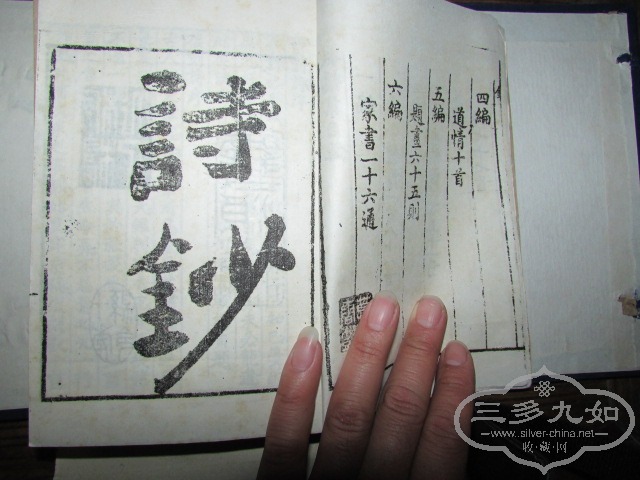 四編
道情十首
五編
題畫六十五則
六編
家書一十六通
詩鈔
三多九如
www.silver-china.net
收藏网